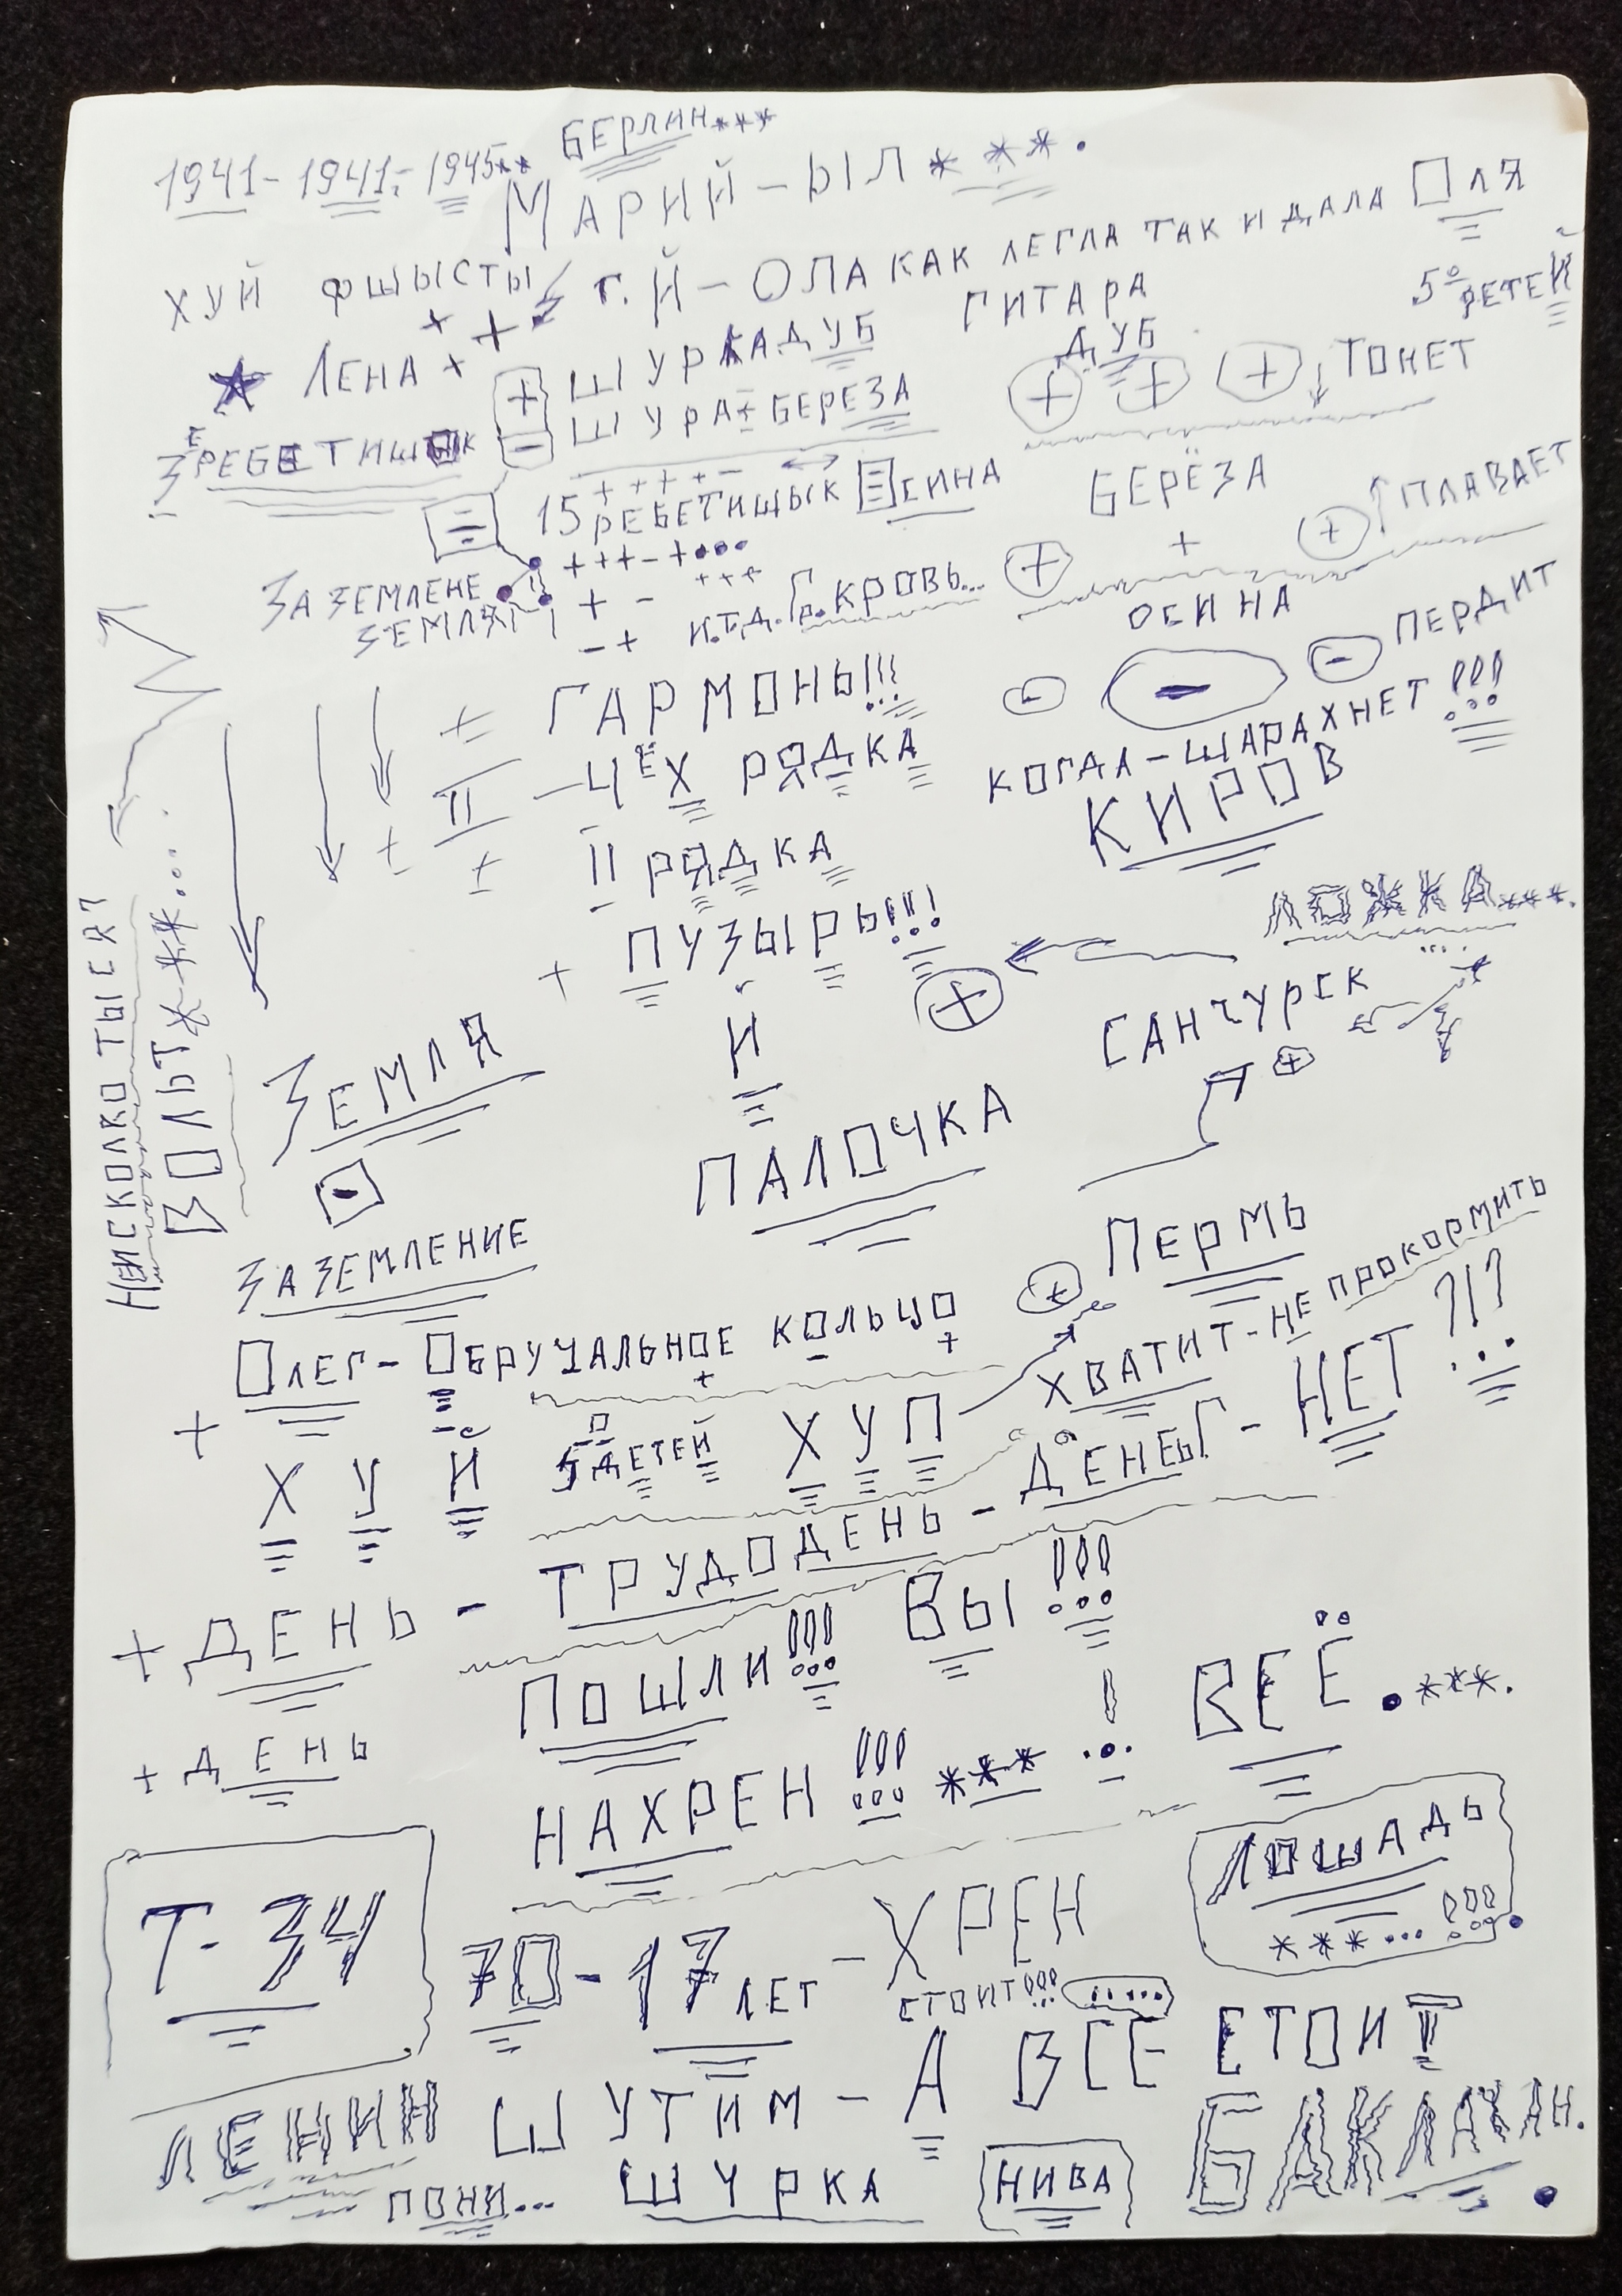 БЕРЛИН***
1941- 1941- 1945**
МАРИЙ - ЫЛ * ***.
ХУЙ ФШЫСТЫ г. Й - ОЛА КАК ЛЕГЛА ТАК И ДАЛА ОЛЯ
+ +
ГИТАРА
ЛЕНА +
+ ШУРКА ДУБ
ДУБ
+ + + ТОНЕТ
- ШУРА + БЕРЕЗА
15 РЕБЕТИШЫК ОСИНА
БЕРЁЗА
+ ПЛАВАЕТ
+++-+•••
ЗАЗЕМЛЕНЕ
ЗЕМЛЯ
+ -
- + И.Т.Д. Гр. КРОВЬ... +
ОСИНА
- - - ПЕРДИТ
± ГАРМОНЬ!!!
КОГДА - ШАРАХНЕТ!!!
II - ЧЁХ РЯДКА
КИРОВ
± ± II РЯДКА
ЛОЖКА***.
+ ПУЗЫРЬ!!!
+
И
САНЧУРСК
+
НЕИСКОЛКО ТЫСЯ?
ВОЛЬТ***...
ЗЕМЛЯ
-
ПАЛОЧКА
ЗАЗЕМЛЕНИЕ
+ ПЕРМЬ
ОЛЕГ - ОБРУЧАЛЬНОЕ КОЛЬЦО
ХВАТИТ - НЕ ПРОКОРМИТЬ
+ ХУЙ 5 ДЕТЕЙ ХУП
+ ДЕНЬ - ТРУДОДЕНЬ - ДЕНЕЬГ - НЕТ ?!?
ПОШЛИ!!! ВЫ!!!
+ ДЕНЬ
НАХРЕН!!! *** ! ВСЁ.***.
Т-34
ЛОШАДЬ
***...!!!.
70-17 ЛЕТ - ХРЕН
СТОИТ!!!
ЛЕНИН ШУТИМ - А ВСЕ СТОИТ
ПОНИ... ШУРКА НИВА БАКЛАЖАН.